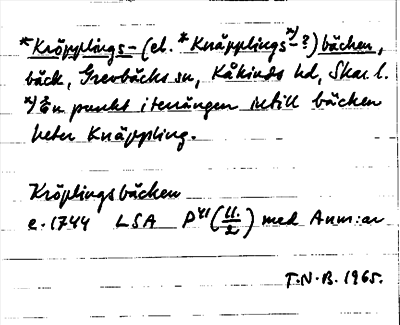 *Kröpplings-(el. *Knäpplings-*)?) bäcken,
bäck, Grevbäcks sn, Kåkinds hd, Skar. l.
*) En punkt i terrängen intill bäcken
heter Knäppling.
Kröplingsbäcken
e. 1744 LSA P41 (11/2) med Anm:ar
T.N.B. 1965.